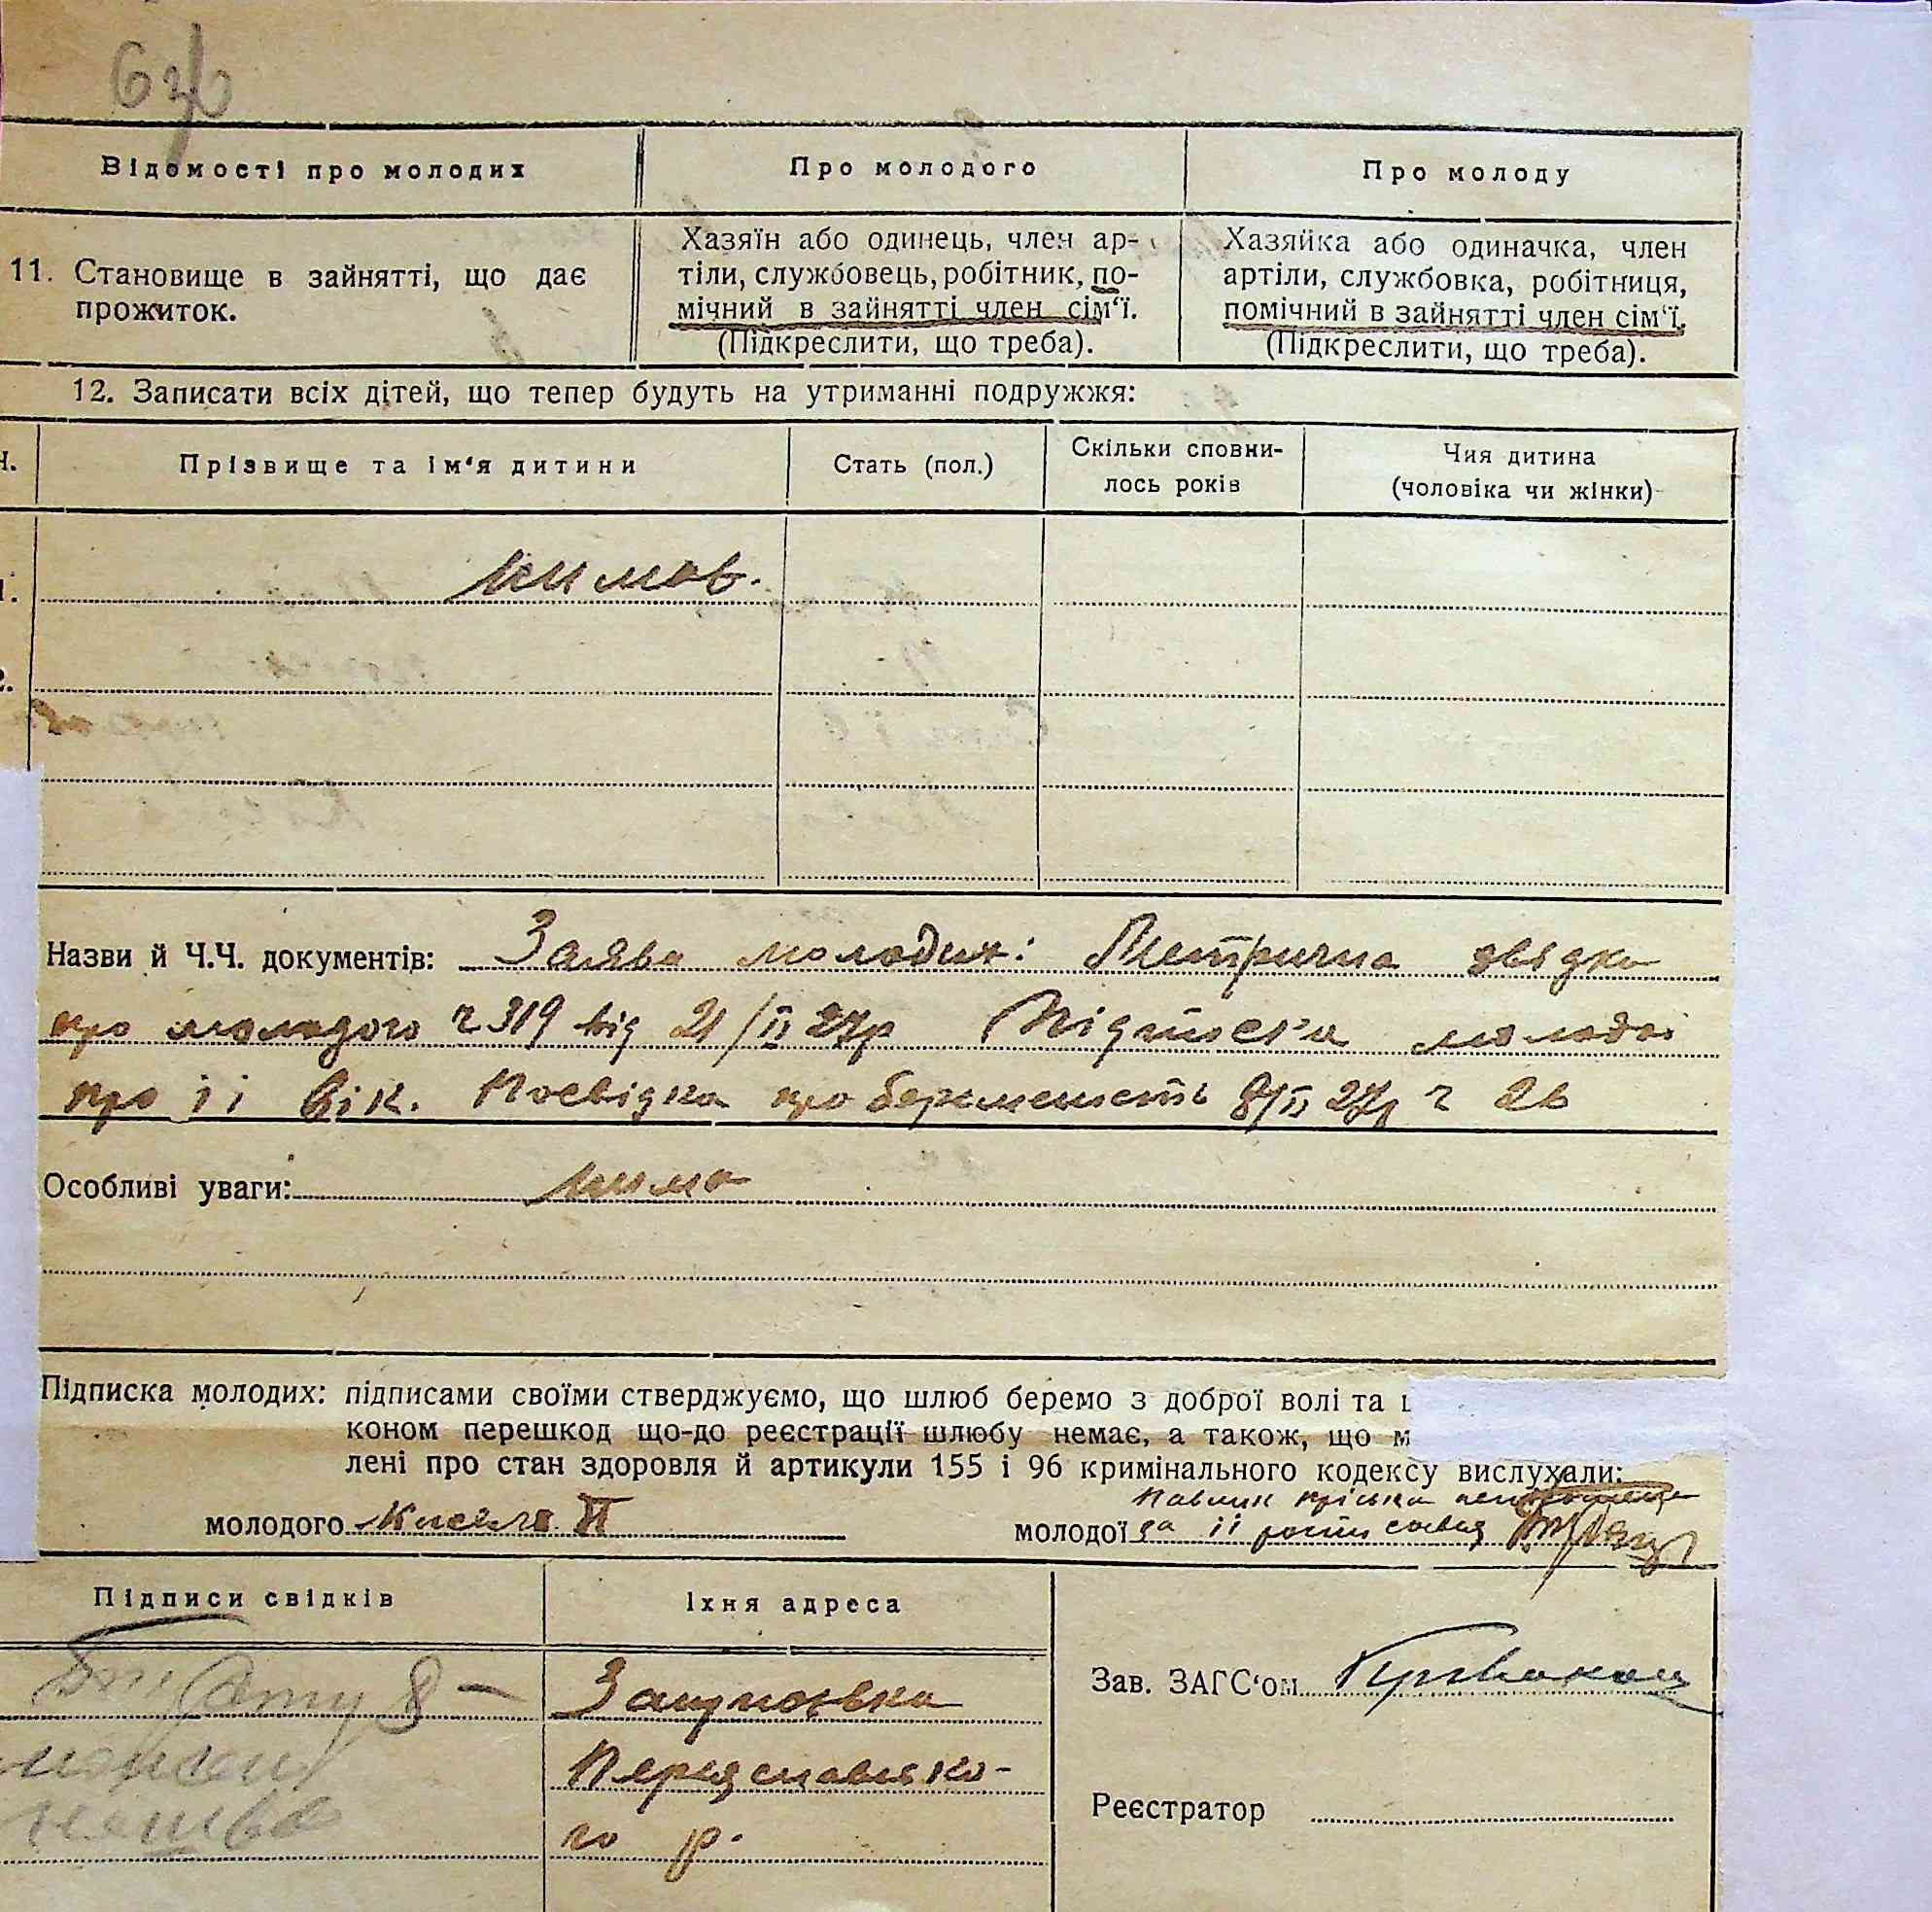 Відомості про молодих
Про молодого
Про молоду
11. Становище в зайнятті, що дає
прожиток.
Хазяїн або одинець, член ар-
тіли, службовець, робітник, по-
мічний в зайнятті член сім‘ї.
(Підкреслити, що треба).
Хазяйка або одиначка, член
артіли, службовка, робітниця,
помічний в зайнятті член сім‘ї.
(Підкреслити, що треба).
12. Записати всіх дітей, що тепер будуть на утриманні подружжя:
Прізвище та ім‘я дитини
Стать (пол.)
Скільки сповни-
лось років
Чия дитина
(чоловіка чи жінки)
1.
2.
Назви й Ч.Ч. документів: Заява молодих: Метрична
про молодого ч 319 від 21/II 27р Підписка молодої
про її вік. Посвідка про беременість 8/II 27р ч 26
Особливі уваги: нима
Підписка молодих: підписами своїми стверджуємо, що шлюб беремо з доброї волі та
коном перешкод що-до реєстрації шлюбу немає, а також, що м
лені про стан здоровля й артикули 155 і 96 кримінального кодексу вислухали:
молодого
молодої за її
Підписи свідків
Їхня адреса
Переяславсько-
го р.
Зав. ЗАГС‘ом
Реєстратор